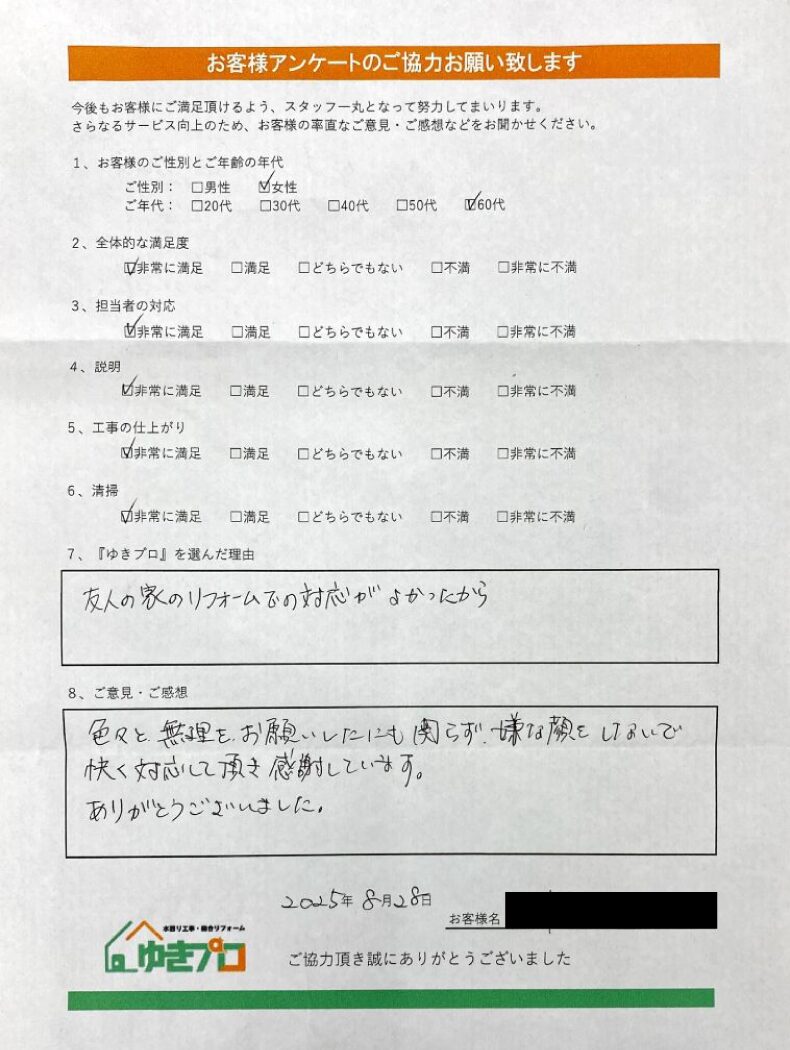 お客様アンケートのご協力お願い致します
今後もお客様にご満足頂けるよう、スタッフ一丸となって努力してまいります。
さらなるサービス向上のため、お客様の率直なご意見・ご感想などをお聞かせください。
1、お客様のご性別とご年齢の年代
ご性別： □男性 ☑女性
ご年代： □20代 □30代 □40代 □50代 ☑60代
2、全体的な満足度
☑非常に満足 □満足 □どちらでもない □不満 □非常に不満
3、担当者の対応
☑非常に満足 □満足 □どちらでもない □不満 □非常に不満
4、説明
☑非常に満足 □満足 □どちらでもない □不満 □非常に不満
5、工事の仕上がり
☑非常に満足 □満足 □どちらでもない □不満 □非常に不満
6、清掃
☑非常に満足 □満足 □どちらでもない □不満 □非常に不満
7、『ゆきプロ』を選んだ理由
友人の家のリフォームでの対応がよかったから
8、ご意見・ご感想
色々と無理をお願いしたにも関らず、嫌な顔をしないで
快く対応して頂き感謝しています。
ありがとうございました。
2025年 8月28日
お客様名
水廻り工事・総合リフォーム
ゆきプロ
ご協力頂き誠にありがとうございました